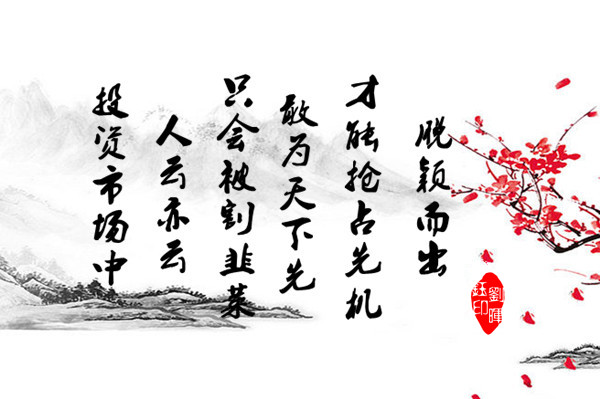 投资市场中
人云亦云
只会被割韭菜
敢为天下先
才能抢占先机
脱颖而出
劉暉
鈺印